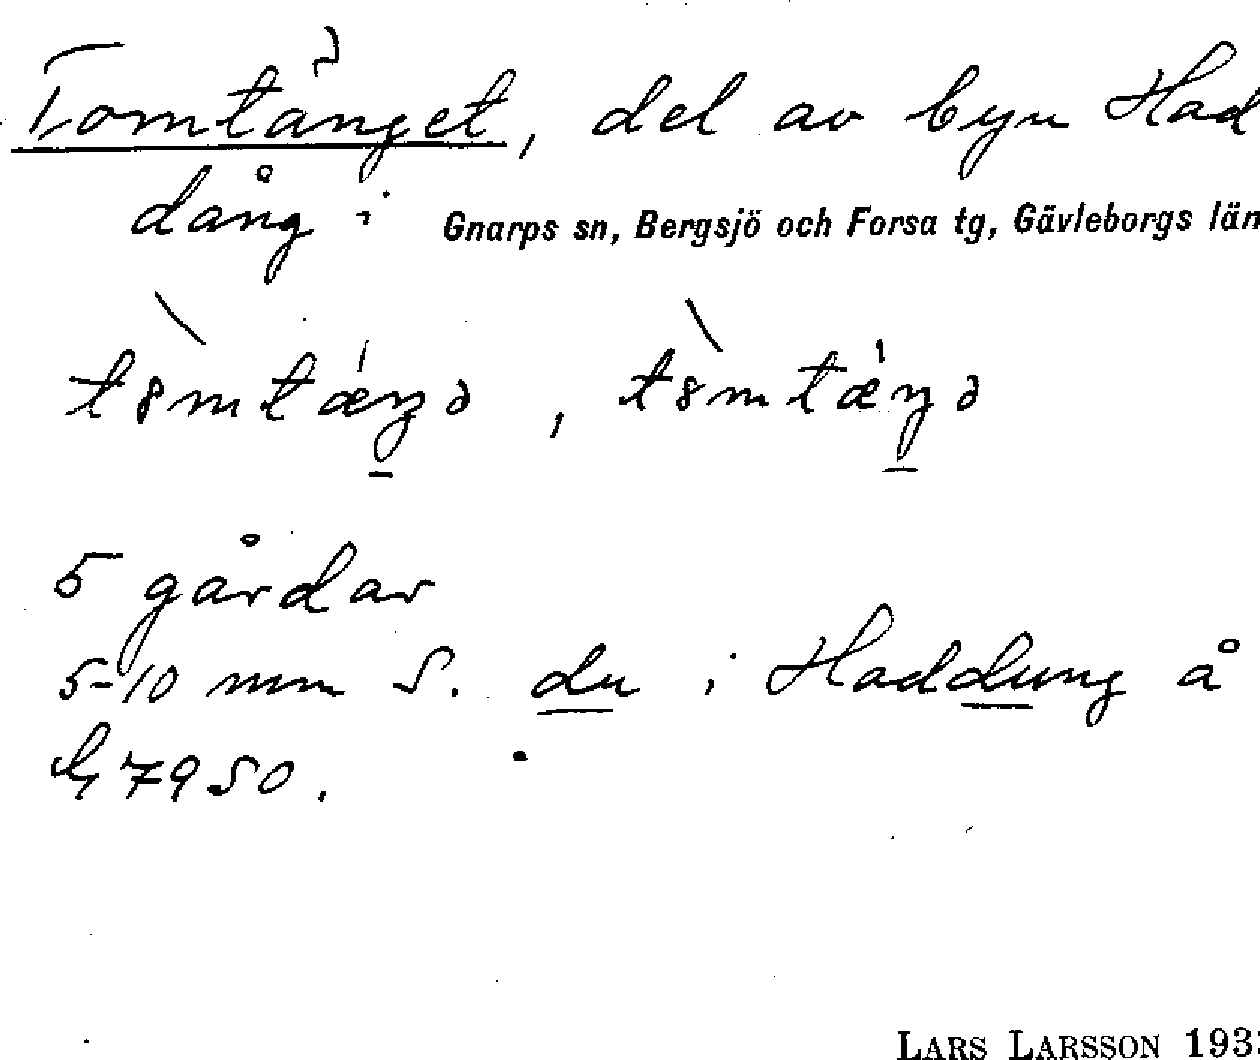 Tomtänget, del av byn Had
dång i Gnarps sn, Bergsjö och Forsa tg, Gävleborgs län
tòmtǽŋə, tòmtǽŋə
5 gårdar
5-10 mm S. du i Haddung å
G 7950.
LARS LARSSON 193